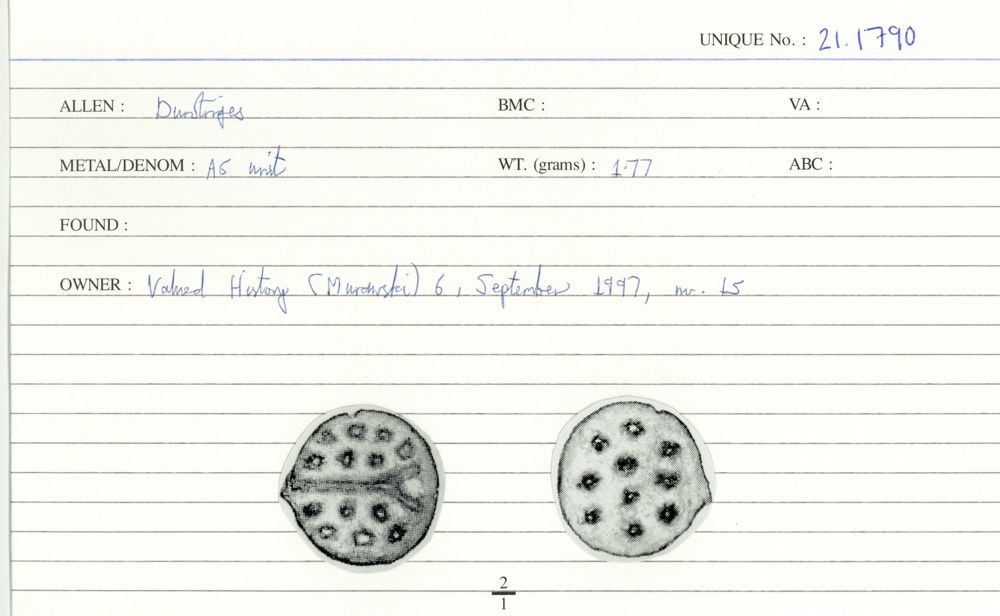 UNIQUE No. : 21.1790
ALLEN : Durotriges BMC : VA :
METAL/DENOM : AE unit WT. (grams) : 1.77 ABC :
FOUND :
OWNER : Valued History (Murawski) 6, September 1997, nr. 15
2
1